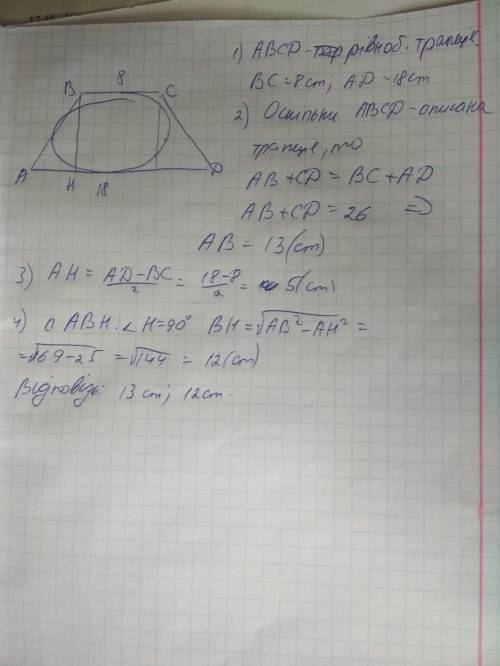 1) ABCD - рівноб. трапеція.
BC = 8 cm; AD = 18 cm
8
B C
A H 18 D
2) Оскільки ABCD - описана
трапеція, то
AB + CD = BC + AD
AB + CD = 26 =>
AB = 13 (cm)
3) AH = (AD - BC)/2 = (18 - 8)/2 = 5 (cm)
4) △ ABH: ∠ H = 90° BH = √(AB² - AH²) =
= √(169 - 25) = √144 = 12 (cm)
Відповідь: 13 cm; 12 cm.